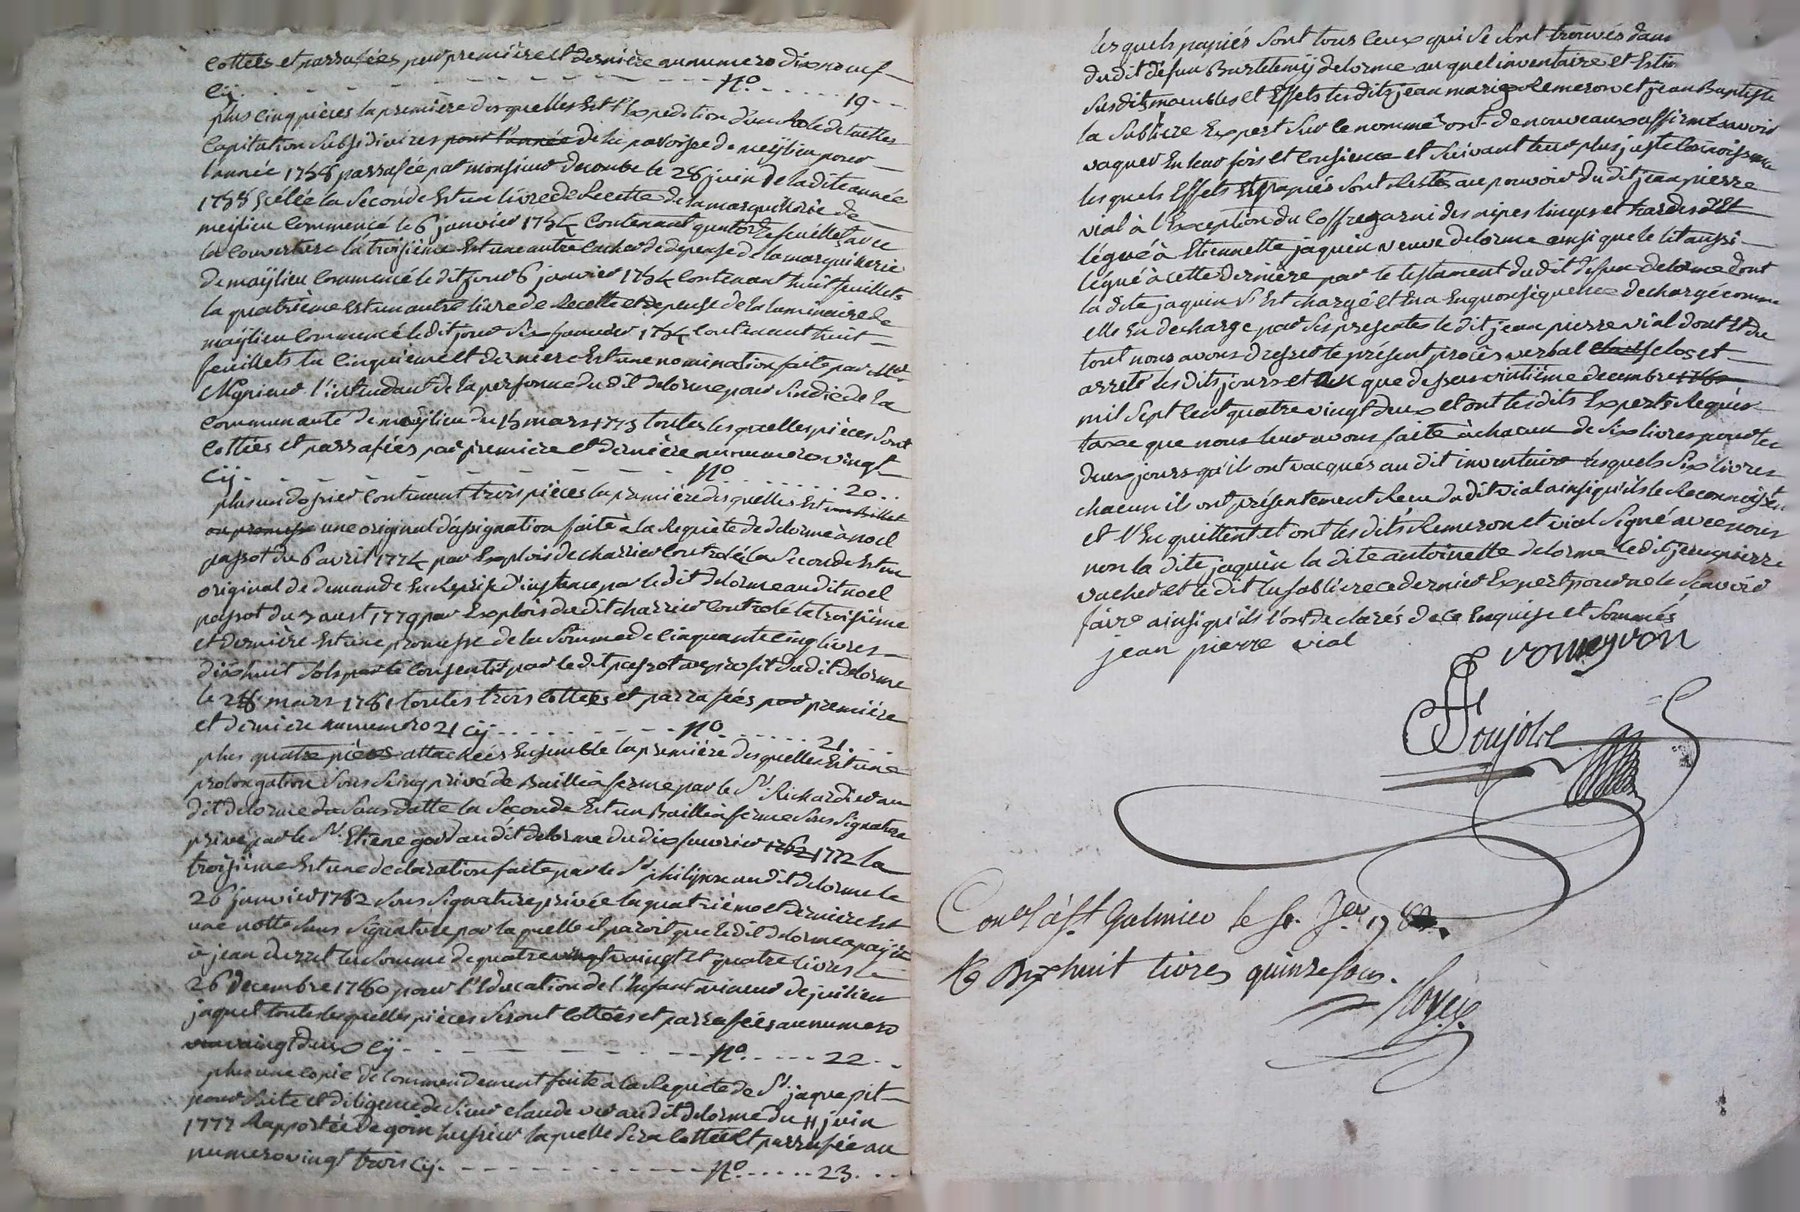 cottées et parrafées par première et dernière au numero dixneuf
cij. N.o 19
plus cinq pièces la première des quelles Est l'Expedition d'un Role de tailles
Capitation Subsidiaires pour l'année de la paroisse de meylieu pour
l'année 1758 parrafée par monsieur ducoube le 28 juin de la dite année
1758 Scélée la Seconde Est un livre de Recette de la marguillerie de
meylieu Commencé le 6 janvier 1754 Contenant quatorze feuillets avec
la Couverture la troisième Est une autre Cacher de depense de la marguillerie
de maÿlieu Commencé le dit jour 6 janvier 1754 Contenant huit feuillets
la quatrième Est un autre livre de Recette et depense de la luminaire de
maÿlieu Commencé le dit jour Six janvier 1754 Contenant huit
feuillets la Cinquieme et derniere Est une nomination faite par
Mgnieur l'intendant de la personne du dit delorme pour Sindic de la
Communauté de meylieu du 15 mars 1773 toutes les quelles pièces Sont
Cottées et parrafées par premiere et dernière au numero vingt
cij. N.o 20
plus un dossier Contenant trois pièces la première des quelles Est un Billet
ou promesse une original d'assignation faite à la Requete de delorme à noel
passot du 6 avril 1774 par Explois de charrier Controlé la Seconde Est un
original de demande En Reprise d'instance par le dit delorme au dit noel
passot du 3 aust 1779 par Explois du dit charrier Controlé la troisième
et dernière Est une promesse de la Somme de Cinquante Cinq livres
dixhuit Sols Consentit par le dit passot au profit du dit delorme
le 28 mars 1781 toutes trois Cottées et parrafées par première
et derniere au numero 21 cij N.o 21
plus quatre pièces attachées Ensemble la première des quelles Est une
prolongation Sous Seing privé de Bailli à ferme par le Sr. Richard
dit delorme du Sous datte la Seconde Est un Bailli à ferme Sous Signature
privé par le Sr. Etiene au dit delorme du dix fevrier 1762 1772 la
troisième Est une declaration faite par le Sr. philippe au dit delorme le
26 janvier 1782 Sous Signature privée la quatrième et dernière Est
une notte Sans Signature par la quelle il paroit que le dit delorme a payé
à jean la Somme de quatre vingt et quatre livres le
26 decembre 1780 pour l'Education de l'Enfant mineur de julien
jaquet toutes les quelles pièces Seront Cottées et parrafées au numero
vingt deux cij N.o 22
plus une copie de Commendement faite à la Requete de Sr. jaque pit
poursuite et diligence de Sieur claude au dit delorme du 11 juin
1777 Rapportée de huissier laquelle Sera Cottée et parrafée au
numero vingt trois cij. N.o 23
les quels papiés Sont tous Ceux qui Se Sont trouvés dans
du dit défun Bartelemÿ delorme au quel inventaire et
Susdits meubles et Effets les dits jean marie Remeron et jean Baptiste
la Sabliere Expert Sur le nommé ont de nouveaux affirmé avoir
vaquer En leur fois et Consience et Suivant leur plus juste
les quels Effets et papiés Sont Restés au pouvoir du dit jean pierre
vial à l'Exception du Coffre garni des nipes linges et hardes
légué à Etiennette jaquin veuve delorme ainsi que le lit aussi
légué à cette dernière par le testament du dit défun delorme dont
la dite jaquin S'Est chargé et En a En quonséquence dechargé comme
elle En decharge par Ses presentes le dit jean pierre vial dont Et du
tout nous avons dressé le présent procès verbal clos et
arreté les dits jours et an que dessus vintième decembre 1782
mil Sept Cent quatre vingt deux et ont les dits Experts Requis
taxe que nous leur avons faite à chacun de Six livres pour les
deux jours qu'il ont vacqués au dit inventaire les quels Six livres
chacun il ont présentement Recu du dit vial ainsi qu'ils le Reconnoissent
et l'En quittent et ont les dits Remeron et vial Signé avec nous
non la dite jaquin la dite antoinette delorme le dit jean pierre
vacher et le dit la Sabliere ce dernier Expert pour ne le Scavoir
faire ainsi qu'ils l'ont declarés de ce Enquise et Sommés
jean pierre vial
romeyron
Poujols
St. Galmier le
Dixhuit livres quinze Sous.